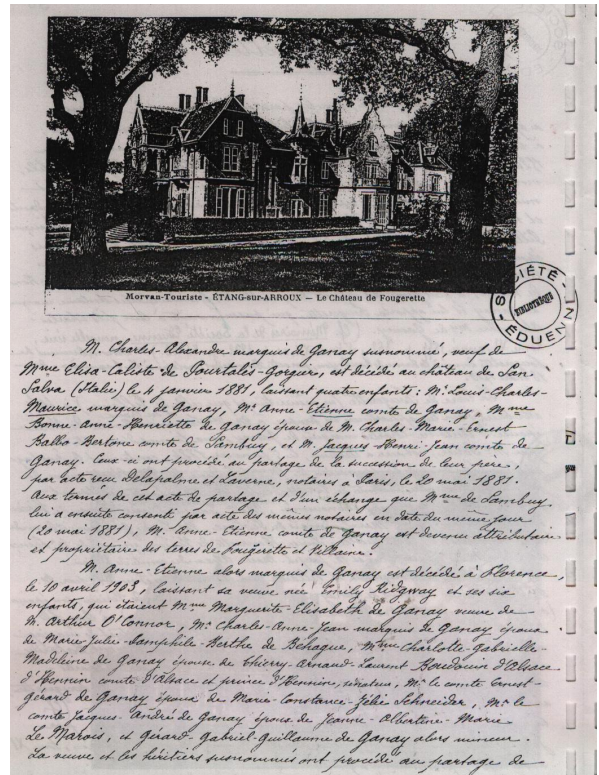 Morvan-Touriste - ÉTANG-sur-ARROUX - Le Château de Fougerette
SOCIÉTÉ ÉDUENNE
BIBLIOTHÈQUE
M. Charles-Alexandre marquis de Ganay susnommé, veuf de
Mme Elisa-Caliste de Pourtalès-Gorgier, est décédé au château de San
Salva (Italie) le 4 janvier 1881, laissant quatre enfants : Mr Louis-Charles-
Maurice marquis de Ganay, Mr Anne-Etienne comte de Ganay, Mme
Bonne-Anne-Henriette de Ganay épouse de M. Charles-Marie-Ernest
Balbo-Bertone comte de Sambuy, et M. Jacques-Henri-Jean comte de
Ganay. Ceux-ci ont procédé au partage de la succession de leur père,
par acte reçu Delapalme et Laverne, notaires à Paris, le 20 mai 1881.
Aux termes de cet acte de partage et d'un échange que Mme de Sambuy
lui a ensuite consenti par acte des mêmes notaires en date du même jour
(20 mai 1881), M. Anne-Etienne comte de Ganay est devenu attributaire
et propriétaire des terres de Fougerette et Villaine.
M. Anne-Etienne alors marquis de Ganay est décédé à Florence,
le 10 avril 1903, laissant sa veuve née Emily Ridgway et ses six
enfants, qui étaient Mme Marguerite-Elisabeth de Ganay veuve de
M. Arthur O'Connor, Mr Charles-Anne-Jean marquis de Ganay époux
de Marie-Julie-Pamphile-Berthe de Behague, Mme Charlotte-Gabrielle-
Madeleine de Ganay épouse de Thierry-Arnaud-Laurent Baudouin d'Alsace
d'Hennin comte d'Alsace et prince d'Hennin, sénateur, Mr le comte Ernest-
Gérard de Ganay époux de Marie-Constance-Zélie Schneider, Mr le
comte Jacques-André de Ganay époux de Jeanne-Albertine-Marie
Le Marois, et Gérard-Gabriel-Guillaume de Ganay alors mineur.
La veuve et les héritiers susnommés ont procédé au partage de